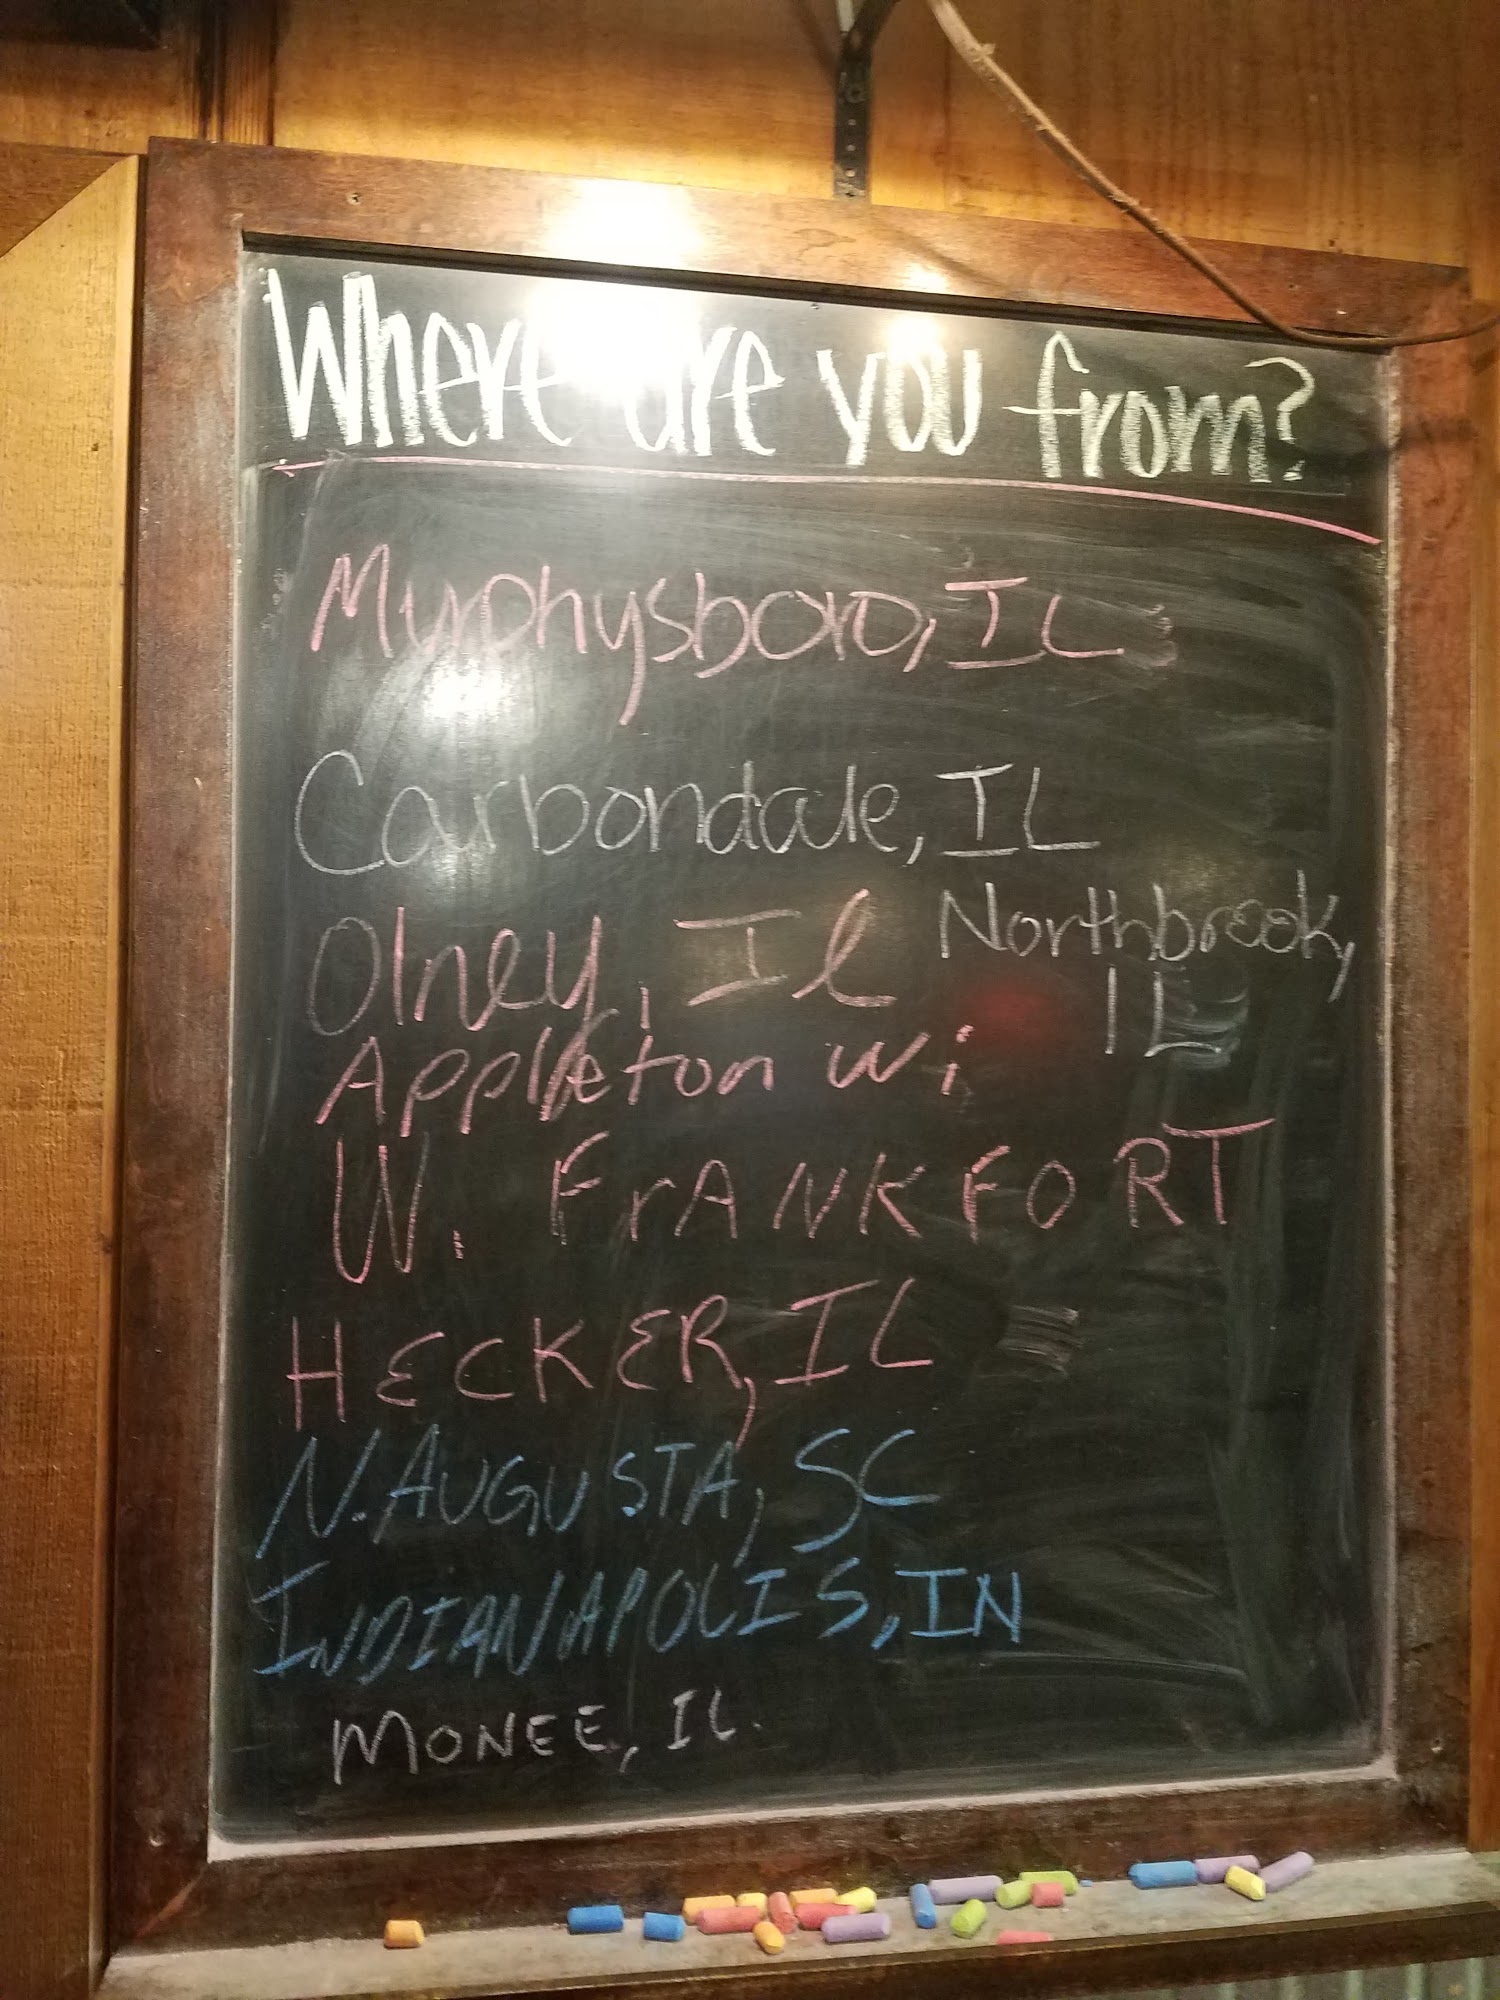 Where are you from?
Murphysboro, IL
Carbondale, IL
Northbrook,
IL
Olney, Il
Appleton Wi
W. FrANKFORT
HECKER, IL
N. AUGUSTA, SC
INDIANAPOLIS, IN
MONEE, IL.